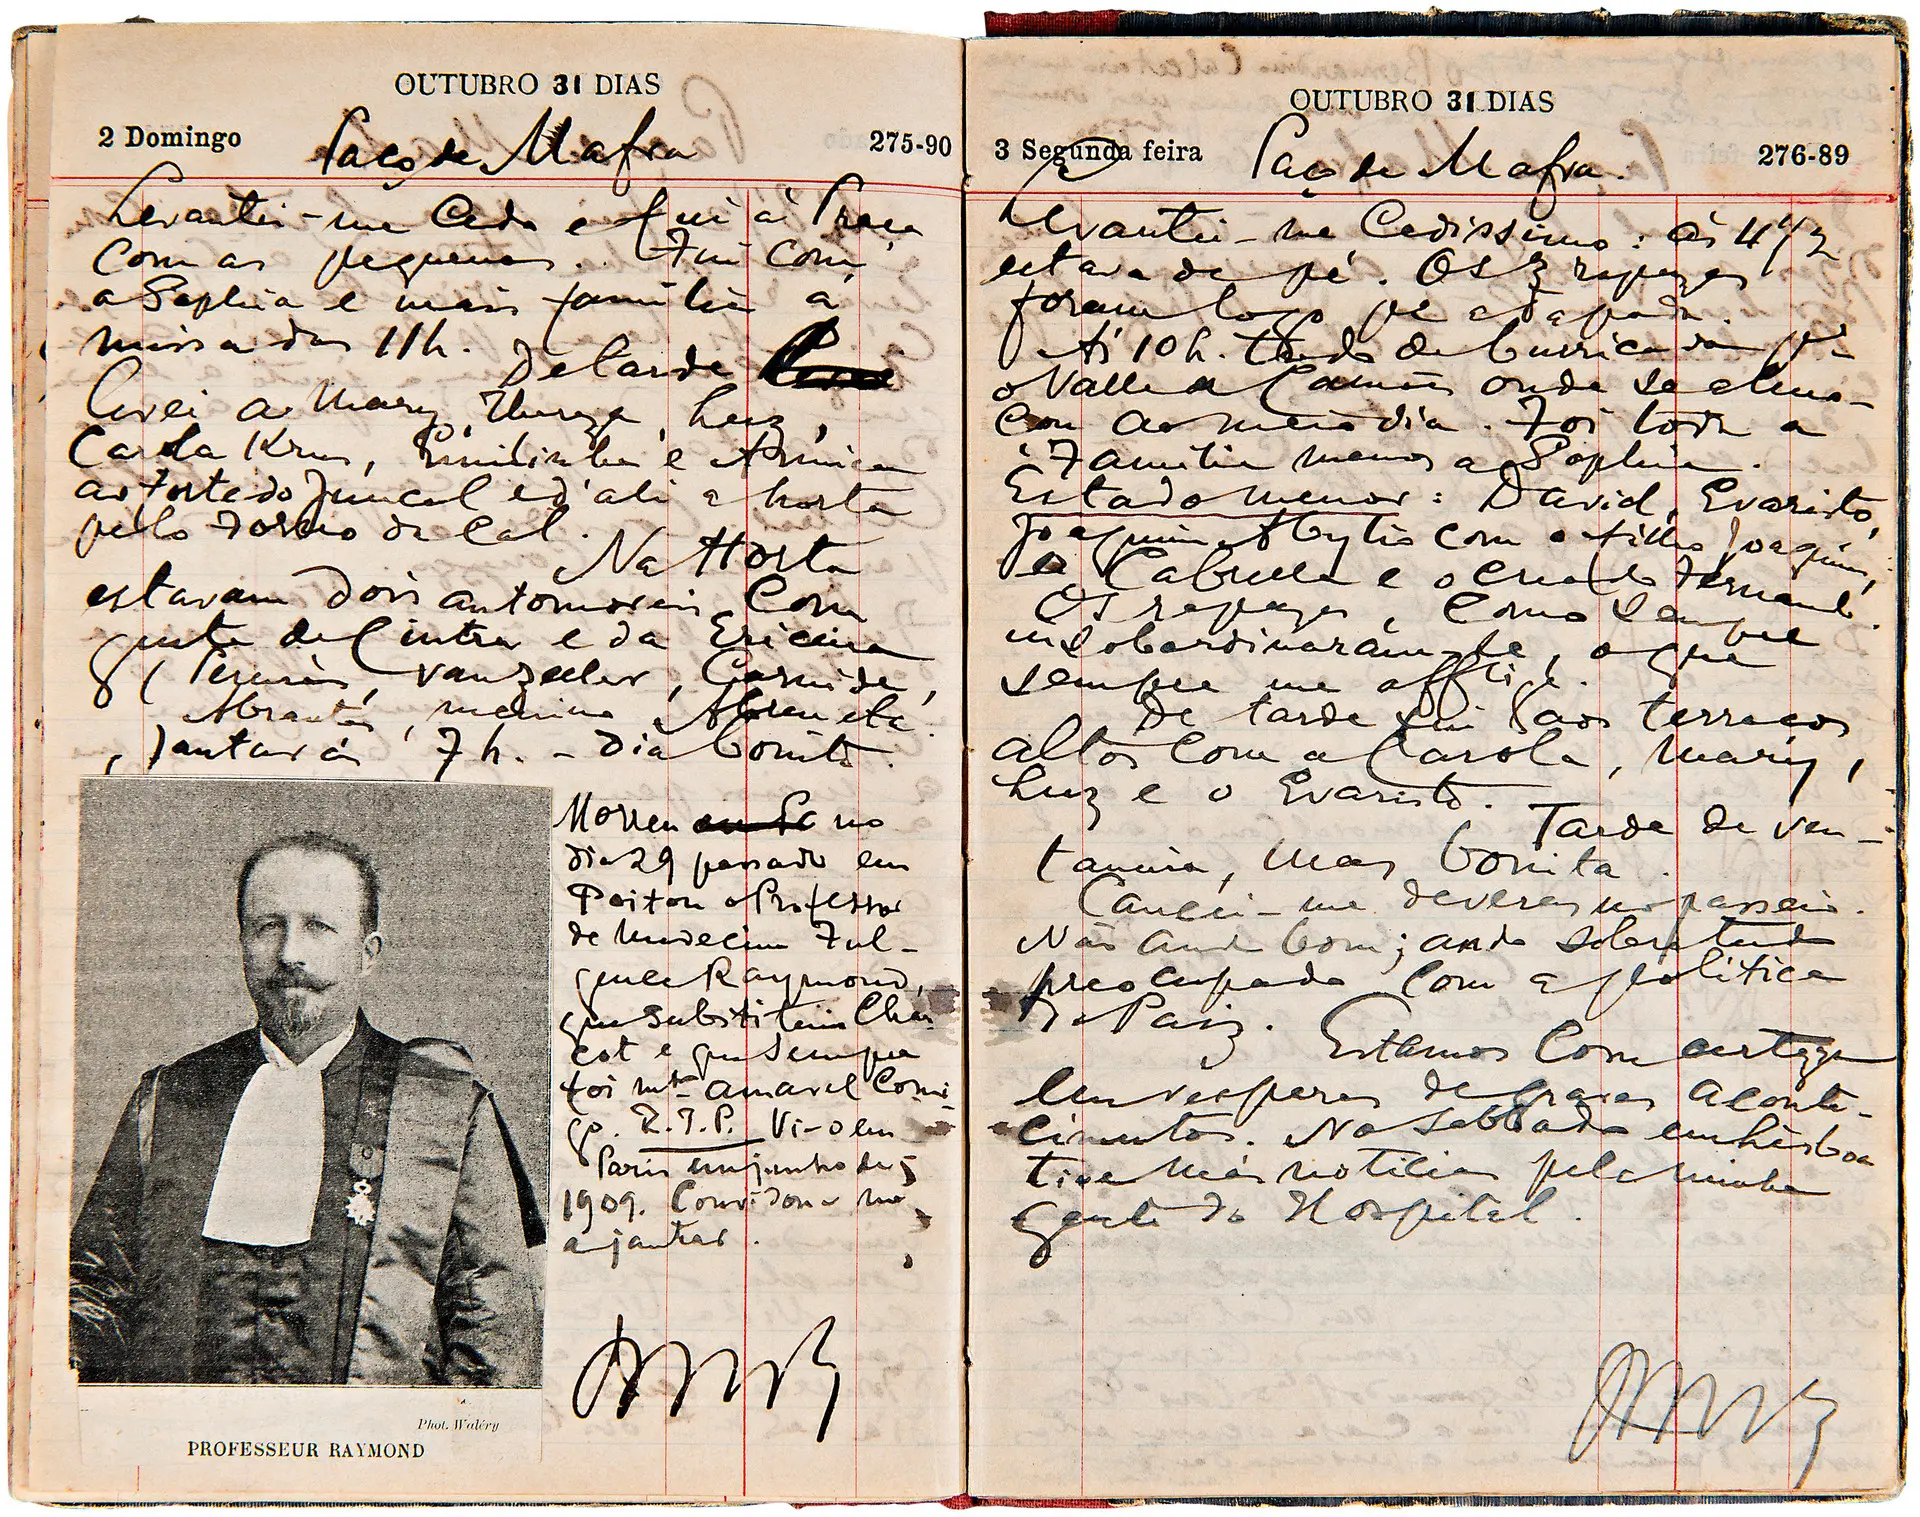 OUTUBRO 31 DIAS
2 Domingo Paço de Mafra 275-90
Levantei-me Cedo e fui à Praça
com as pequenas. Fui com
a Sophia e mais familia á
missa das 11h. De tarde
levei a Mary, Thereza, Luz,
Carola Krus, Emilinha e
ao Forte do Juncal e d'ali a horta
pelo Forno da Cal. Na Horta
estavam dois automoveis com
gente de Cintra e da Ericeira
Vanzeller,
Abrantes, menino Abreu etc.
Jantar ás 7h. - Dia bonito.
Morreu no
dia 29 passado em
o Professor
de Medecina Ful-
gence Raymond,
que substituiu Char
cot e que sempre
foi mto amavel comi
go. R.I.P. Vi-o em
Paris em junho de
1909. Convidou-me
a jantar.
Phot. Waléry
PROFESSEUR RAYMOND
OUTUBRO 31 DIAS
3 Segunda feira Paço de Mafra. 276-89
Levantei-me Cedissimo: ás 4 1/2
estava de pé. Os 3 rapazes
foram logo pa a tapada.
Ás 10 h. tudo de burricada pa
o Valle onde se almo-
çou ao meio dia. Foi toda a
Familia menos a Sophia.
Estado menor: David, Evaristo,
Joaquim com o filho Joaquim,
e o creado Fernando.
Os rapazes, como sempre
insobordinarám-se, o que
sempre me afflige.
De tarde fui aos terraços
altos com a Carola, Mary,
Luz e o Evaristo.
Tarde de ven-
tania, mas bonita.
Cancei-me deveras no passeio.
Não ando bom; ando sobretudo
preocupado com a politica
do Paiz. Estamos com certeza
em vesperas de graves aconte-
cimentos. No sabbado em Lisboa
tive más noticias pela minha
gente do Hospital.